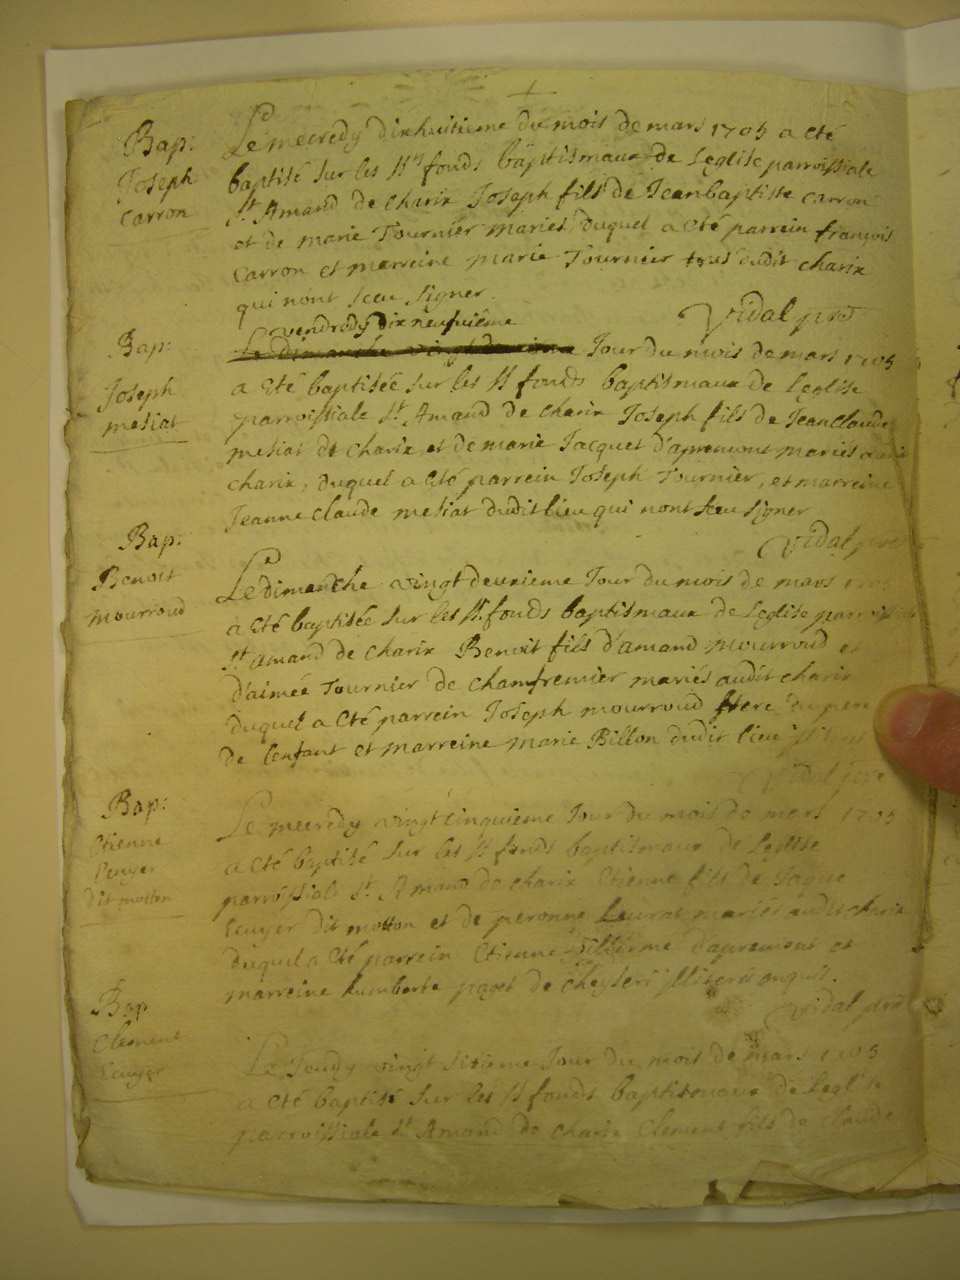 Bap:
Joseph
Carron
Le mecredy dixhuitieme du mois de mars 1705 a eté
baptisé sur les sts fonds baptismaux de Leglise parroissiale
St Amand de charix Joseph fils de Jeanbaptiste carron
et de marie Tournier mariés, duquel a eté parrein françois
Carron et marreine marie Tournier tous dudit charix
qui nont sceu signer.
Vidal pre
Bap:
Joseph
mesiat
vendredy dix neufuième
Le dimanche vingt deuxieme Jour du mois de mars 1705
a eté baptisée sur les sts fonds baptismaux de Leglise
parroissiale St Amand de charix Joseph fils de Jeanclaude
mesiat de charix et de marie Jacquet d'apremont mariés
charix, duquel a eté parrein Joseph Tournier, et marreine
Jeanne claude mesiat dudit lieu qui nont sceu signer
Vidal pre
Bap:
Benoit
mourroud
Le dimanche vingt deuxieme Jour du mois de mars 1705
a eté baptisée sur les sts fonds baptismaux de Leglise parroissiale
St Amand de charix Benoit fils d'amand mourroud et
d'aimée Tournier de chamfremier mariés audit charix
duquel a eté parrein Joseph mourroud frere du pere
de lenfant et marreine marie Billon dudit lieu
Vidal pre
Bap:
Etienne
Ecuyer
dit motton
Le mecredy vingt cinquieme Jour du mois de mars 1705
a eté baptisé sur les sts fonds baptismaux de Leglise
parroissiale St Amand de charix Etienne fils de Jaque
Ecuyer dit motton et de peronne Leurat mariés audit charix
duquel a eté parrein Etienne d'apremont et
marreine humberte paget de illiterés enquis.
Vidal pre
Bap
Clement
Ecuyer
Le Jeudy vingt sixieme Jour du mois de mars 1705
a eté baptisé sur les sts fonds baptismaux de Leglise
parroissiale St Amand de charix Clement fils de claude